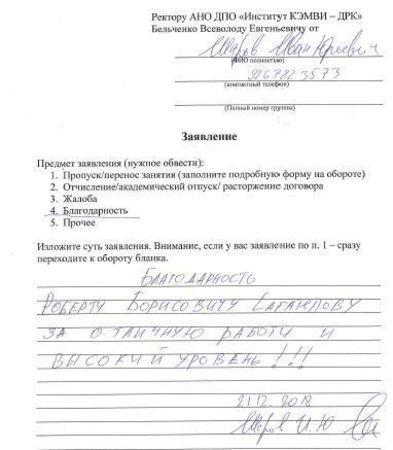 Ректору АНО ДПО «Институт КЭМВИ – ДРК»
Бельченко Всеволоду Евгеньевичу от
Шаров Иван Юрьевич
(ФИО полностью)
926 782 3573
(контактный телефон)
(Полный номер группы)
Заявление
Предмет заявления (нужное обвести):
1. Пропуск/перенос занятия (заполните подробную форму на обороте)
2. Отчисление/академический отпуск/ расторжение договора
3. Жалоба
4. Благодарность
5. Прочее
Изложите суть заявления. Внимание, если у вас заявление по п. 1 – сразу
переходите к обороту бланка.
Благодарность
Роберту Борисовичу
за отличную работу и
высокий уровень!!!
21.12.2018
Шаров И.Ю